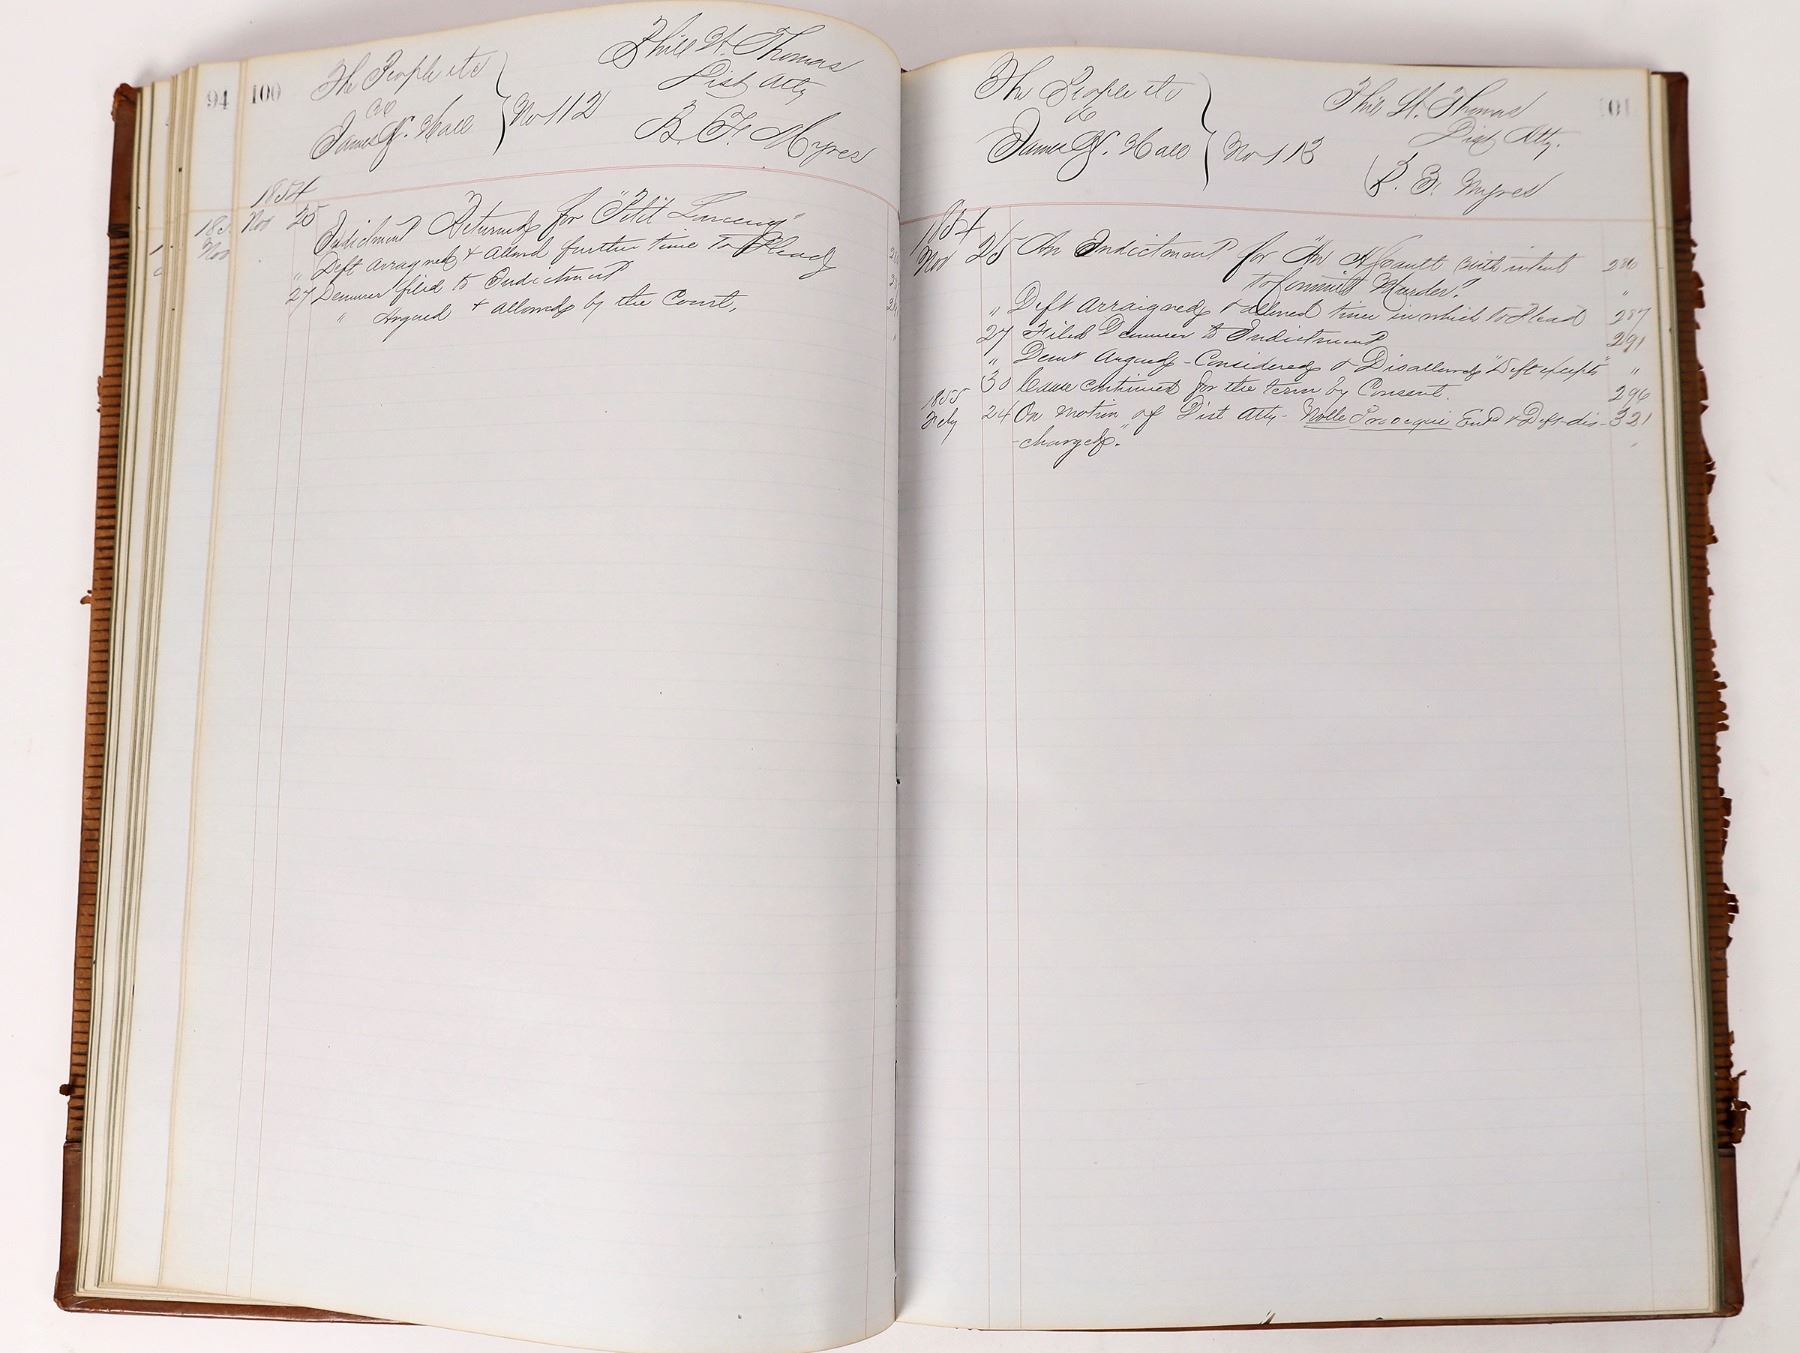 94
100
The People etc
vs
James W. Hall
No 112
Phill W. Thomas
Dist Atty
B. F. Myres
1854
Nov 25 Indictment Returned for "Petit Larceny"
" Deft Arraigned & allowed further time to Plead
27 Demurer filed to Indictment
" Argued & allowed by the Court.
185
Nov
The People etc
vs
James W. Hall
No 113
Phil W. Thomas
Dist Atty.
B. F. Myres
101
1854
Nov 25 An Indictment for "An Assault with intent 286
to Commit Murder". "
" Deft Arraigned & allowed time in which to Plead 287
27 Filed Demurer to Indictment 291
" Demr Argued - Considered & Disallowed "Deft excepts" "
30 Cause continued for the term by Consent. 296
1855
Feby 24 On Motion of Dist Atty - Nolle Prosequi Entd & Deft dis- 321
-charged."